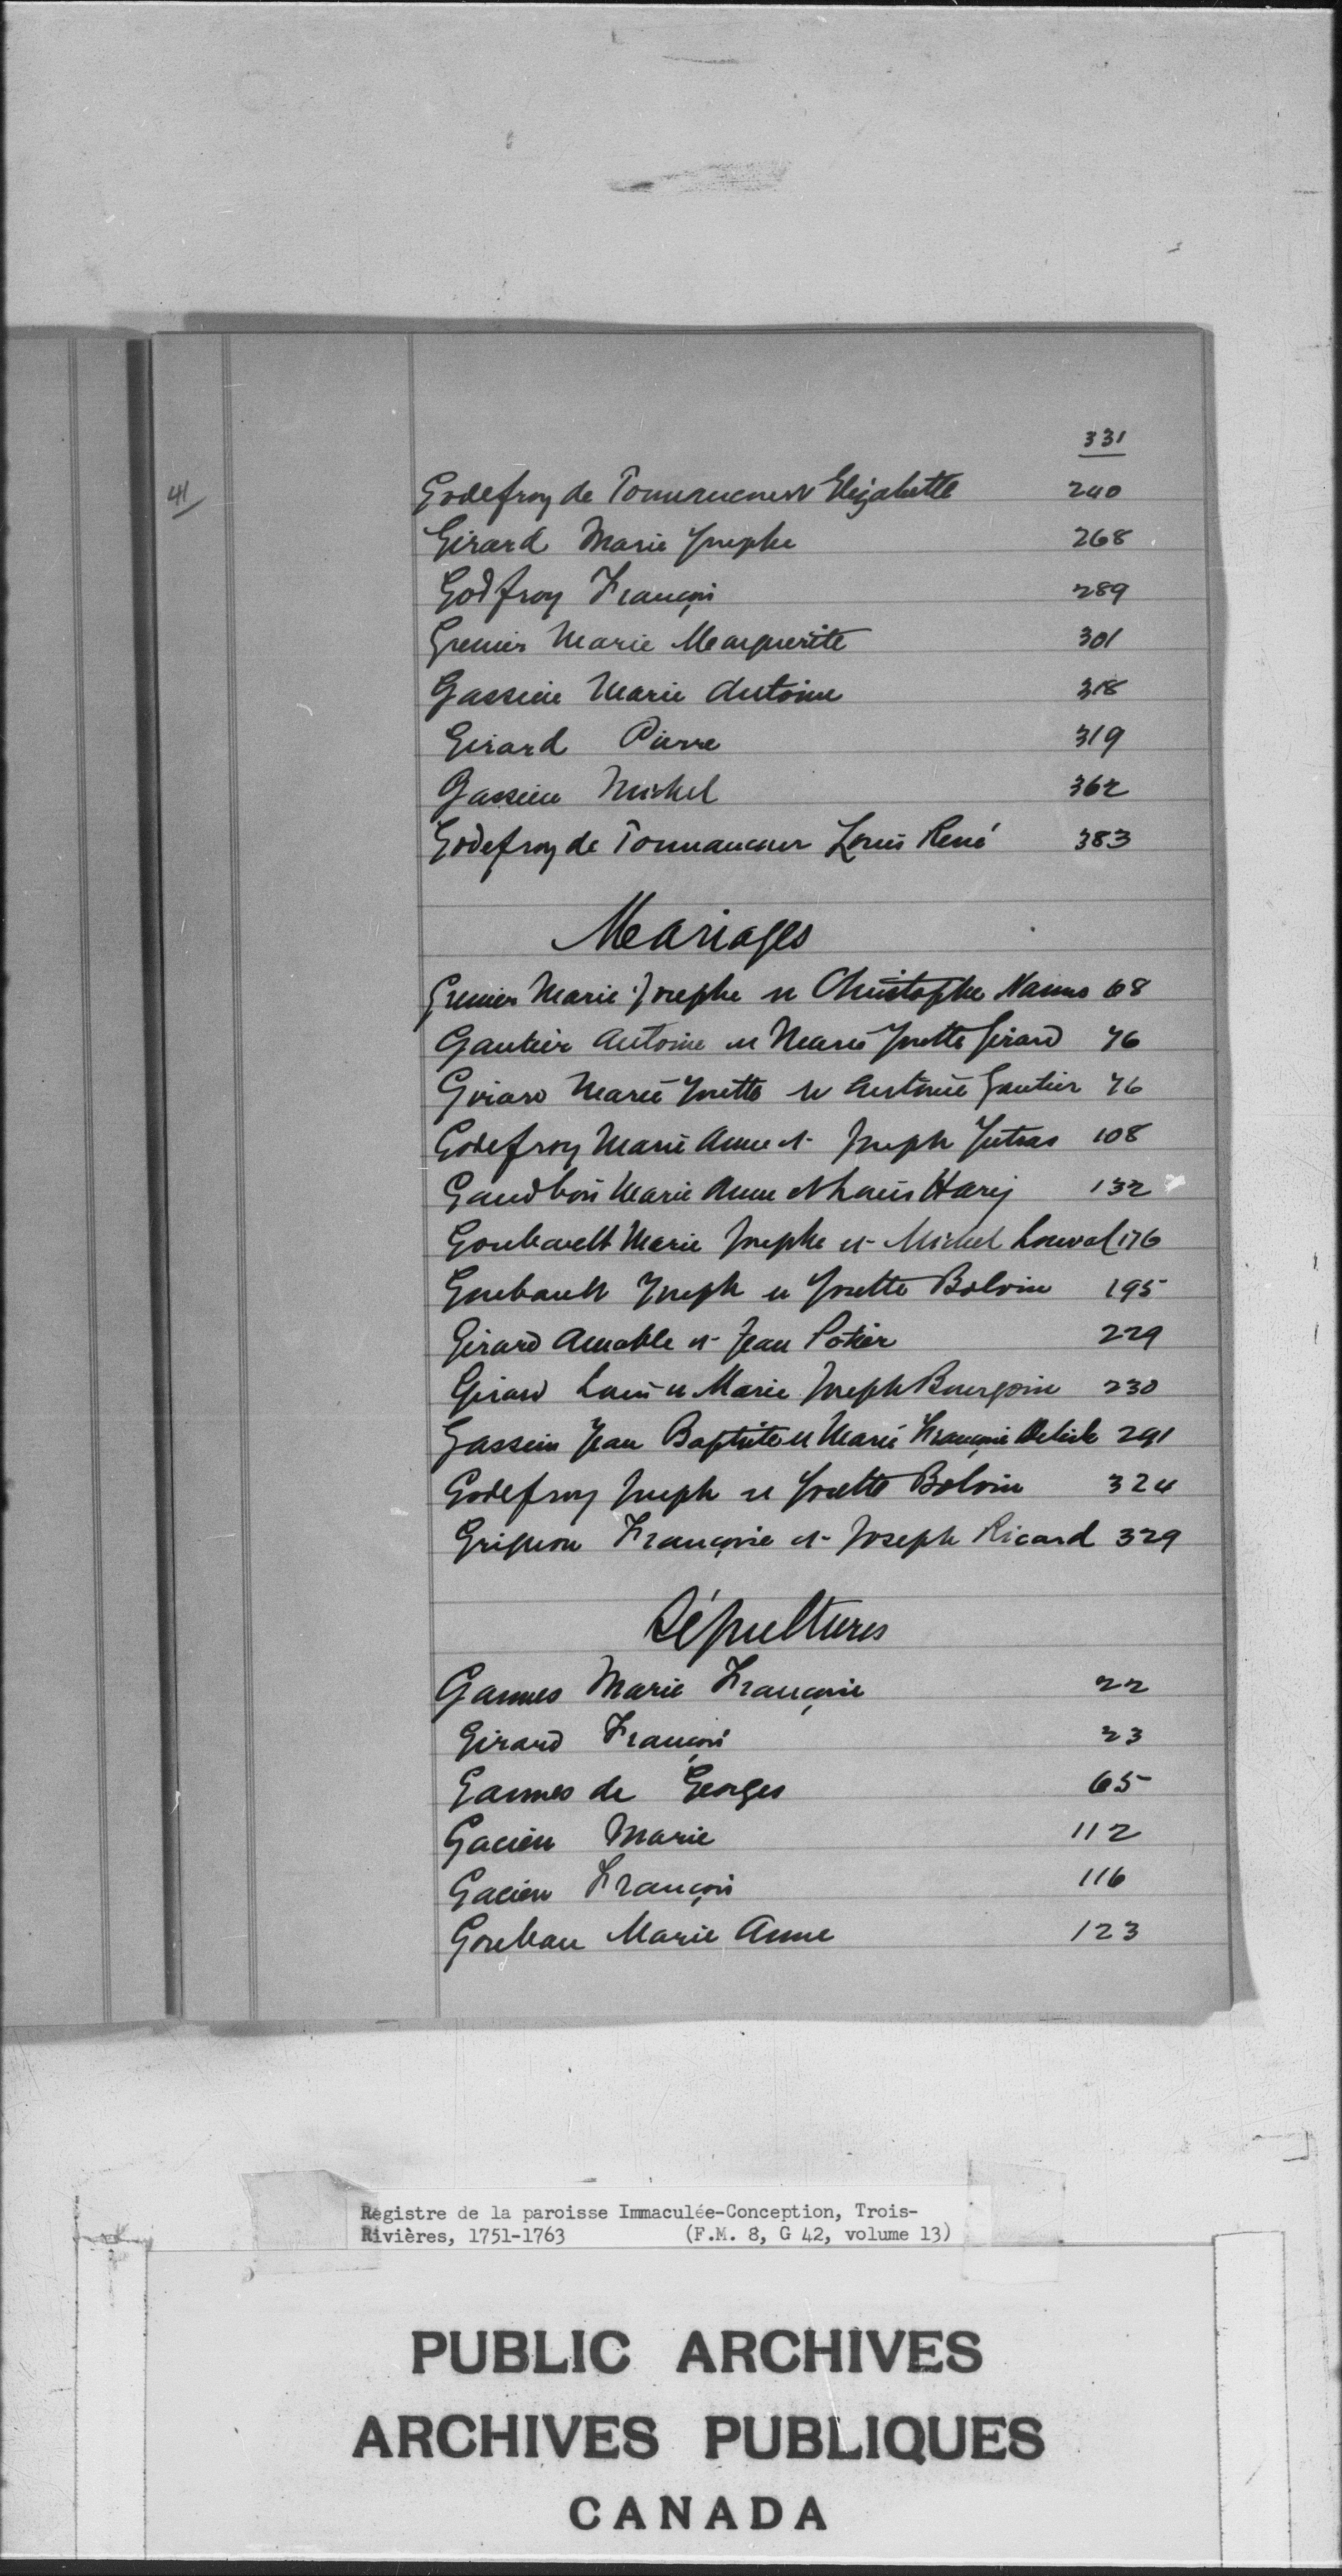 331
41
Godefroy de Tonnancour Elizabette 240
Girard Marie Josephe 268
Godfroy François 289
Grenier Marie Marguerite 301
Gassien Marie Antoine 318
Girard Pierre 319
Gassien Michel 362
Godefroy de Tonnancour Louis René 383
Mariages
Grenier Marie Josephe et Christophe Namus 68
Gautier Antoine et Marie Josette Girard 76
Girard Marie Josette et Antoine Gautier 76
Godefroy Marie Anne et Joseph Jutras 108
Marie Anne et Louis Harej 132
Goubault Marie Josephe et Michel 176
Goubault Joseph et Josette Bolvin 195
Girard Amable et Jean Potier 229
Girard Louis et Marie Joseph Bourgoin 230
Gassien Jean Baptiste et Marie Françoise Delisle 291
Godefroy Joseph et Josette Bolvin 324
Grignon Françoise et Joseph Ricard 329
Sépultures
Gannes Marie Françoise 22
Girard François 23
Gannes de Georges 65
Gacien Marie 112
Gacien François 116
Goubau Marie Anne 123
Registre de la paroisse Immaculée-Conception, Trois-
Rivières, 1751-1763 (F.M. 8, G 42, volume 13)
PUBLIC ARCHIVES
ARCHIVES PUBLIQUES
CANADA